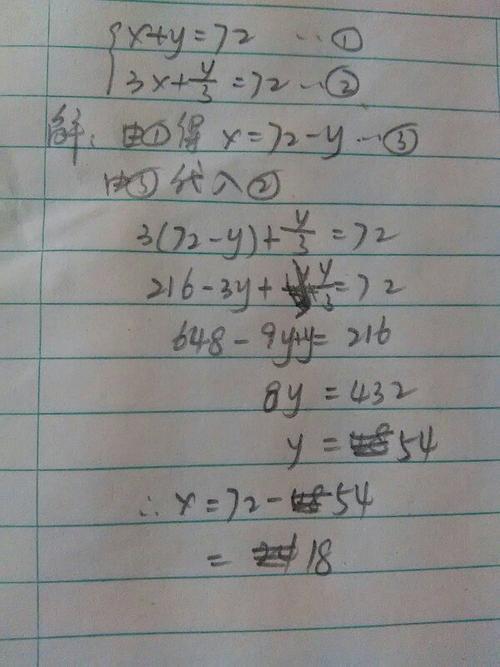 { x+y=72 … ①
3x+y/3=72 … ②
解：由①得 x=72-y … ③
③代入②
3(72-y)+y/3=72
216-3y+y/3=72
648-9y+y=216
8y=432
y=54
∴ x=72-54
=18